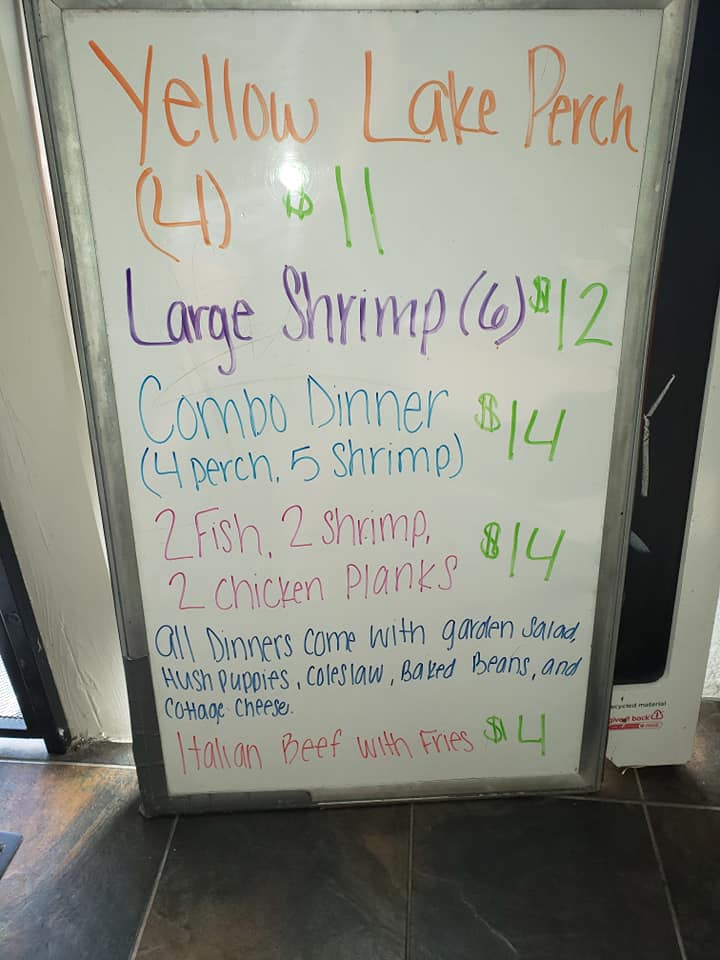 Yellow Lake Perch
(4) $11
Large Shrimp (6) $12
Combo Dinner $14
(4 perch, 5 Shrimp)
2 Fish, 2 shrimp, $14
2 chicken Planks
All Dinners come with garden Salad,
Hush Puppies, Coleslaw, Baked Beans, and
Cottage Cheese.
Italian Beef with Fries $4
recycled material
give it back